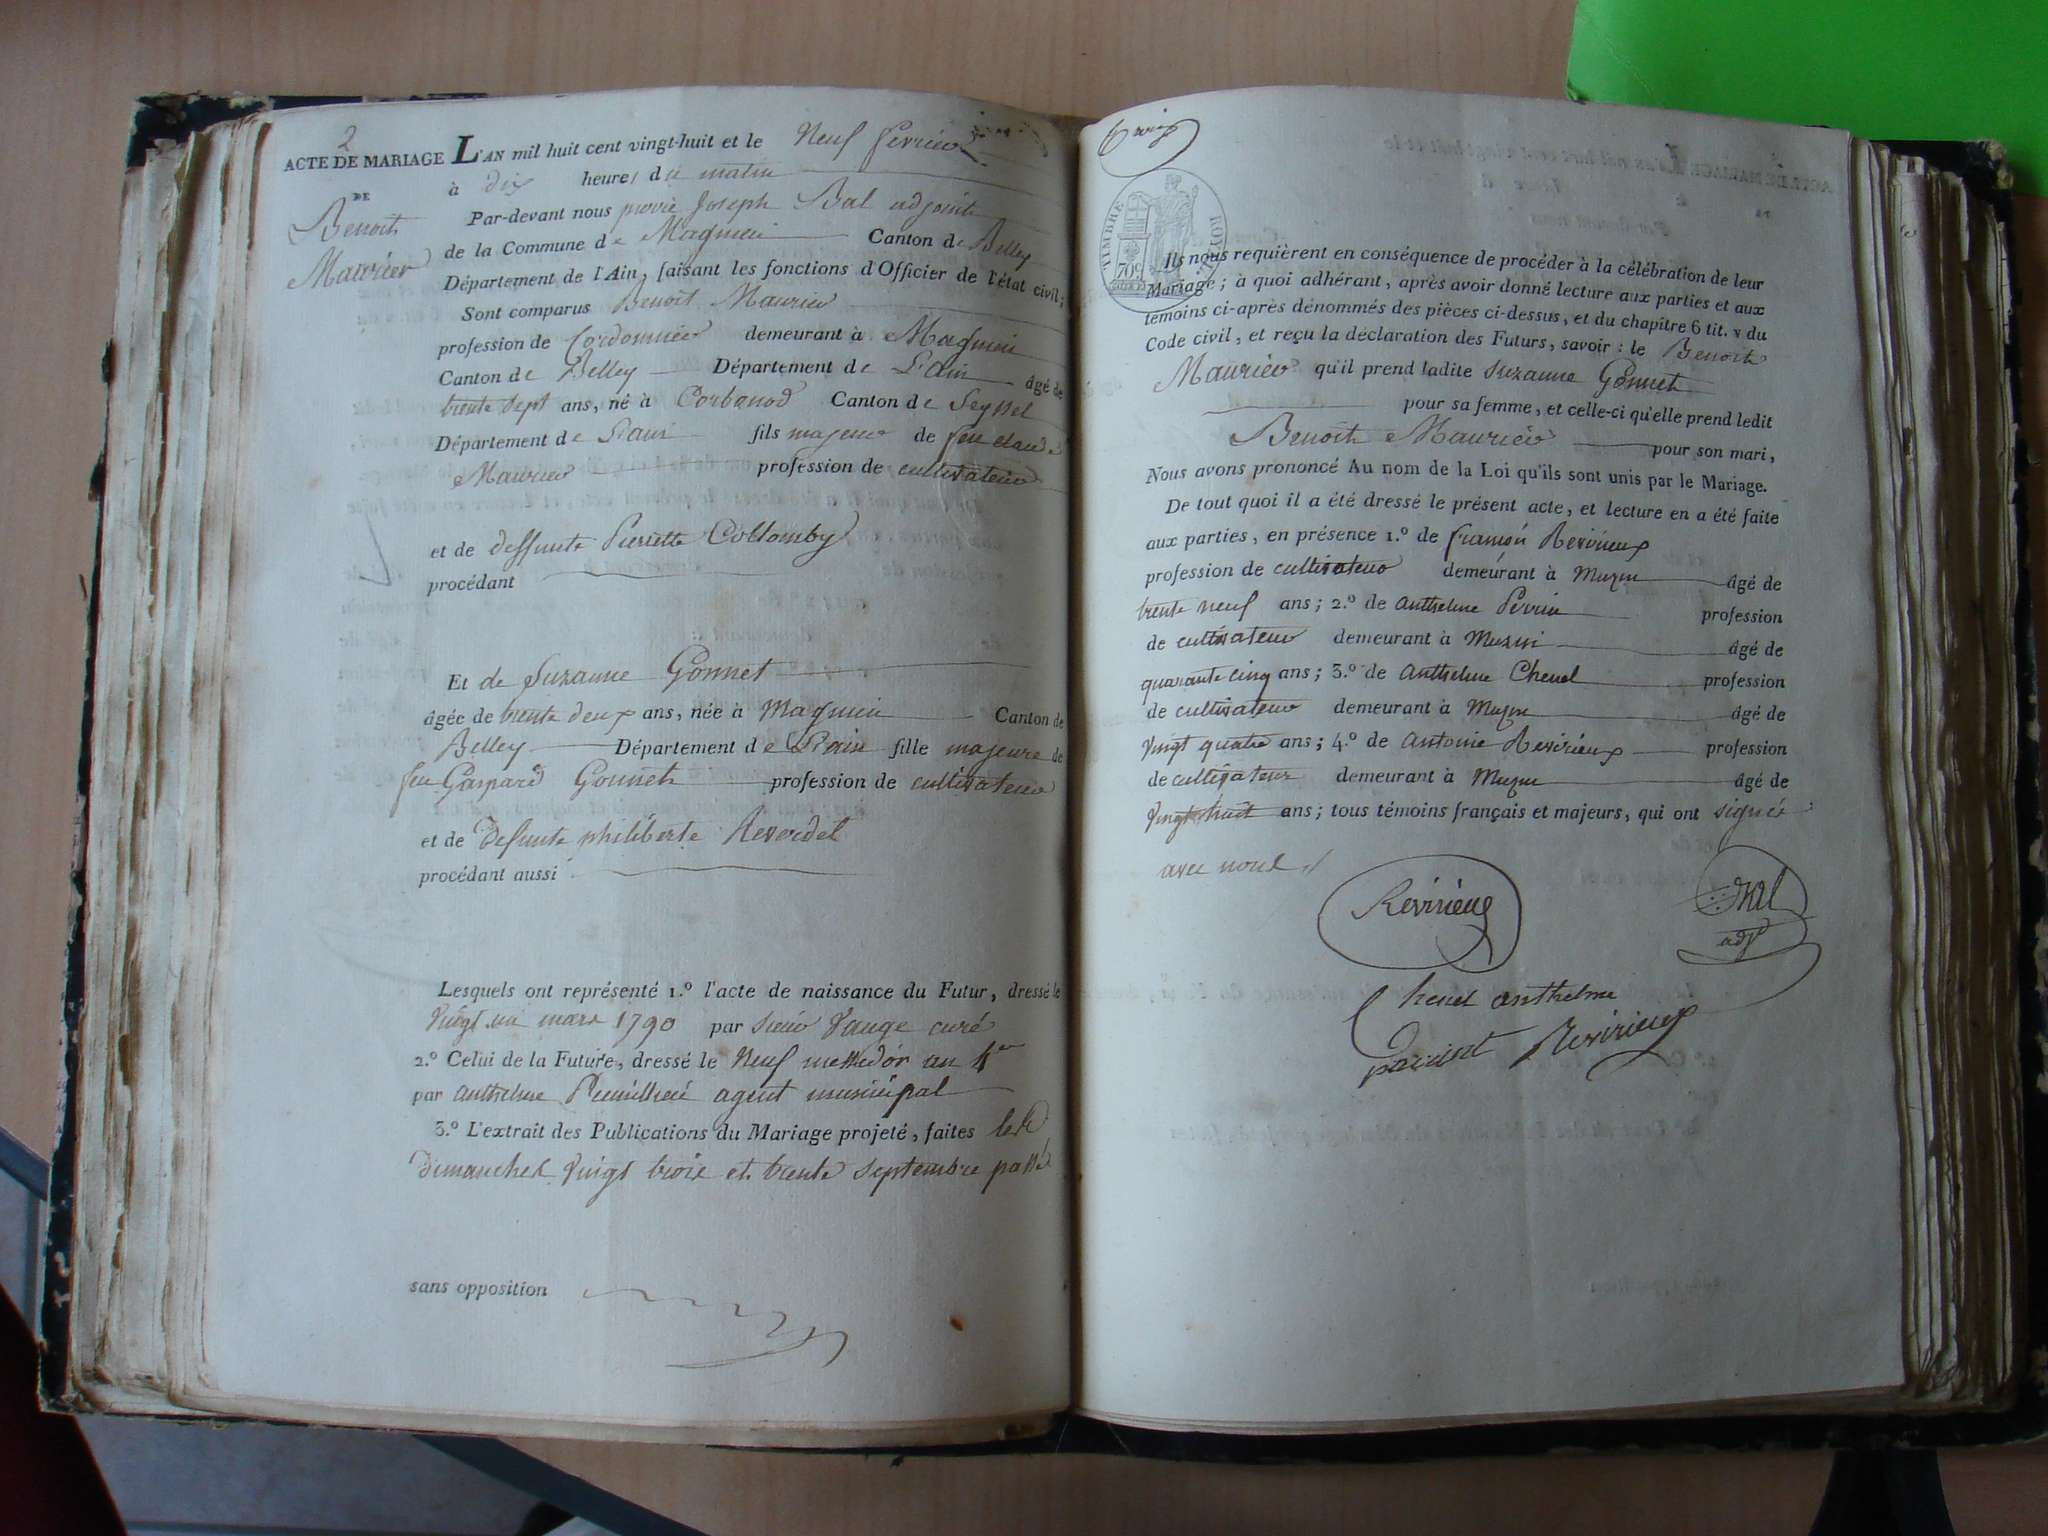 2
ACTE DE MARIAGE L'AN mil huit cent vingt-huit et le Neuf fevrier
DE
Benoit
Maurier
à dix heures du matin
Par-devant nous pierre Joseph Bal adjoint
de la Commune de Magnieu Canton de Belley
Département de l'Ain, faisant les fonctions d'Officier de l'état civil;
Sont comparus Benoit Maurier
profession de Cordonnier demeurant à Magnieu
Canton de Belley Département de L'ain âgé de
trente sept ans, né à Corbonod Canton de Seyssel
Département de L'ain fils majeur de feu claude
Maurier profession de cultivateur
et de deffunte Pierrette Collomby
procédant
Et de Suzanne Gonnet
âgée de trente deux ans, née à Magnieu Canton de
Belley Département de L'ain fille majeure de
feu Gaspard Gonnet profession de cultivateur
et de defunte philiberte Revordel
procédant aussi
Lesquels ont représenté 1.º l'acte de naissance du Futur, dressé le
Vingt un mars 1790 par sieur Vauge curé
2.º Celui de la Future, dressé le Neuf messidor an 4er
par anthelme agent municipal
3.º L'extrait des Publications du Mariage projeté, faites les
dimanches Vingt trois et trente septembre passé
sans opposition
TIMBRE ROYAL
70c
Ils nous requièrent en conséquence de procéder à la célébration de leur
Mariage; à quoi adhérant, après avoir donné lecture aux parties et aux
témoins ci-après dénommés des pièces ci-dessus, et du chapitre 6 tit. v du
Code civil, et reçu la déclaration des Futurs, savoir: le Benoit
Maurier qu'il prend ladite Suzanne Gonnet
pour sa femme, et celle-ci qu'elle prend ledit
Benoit Maurier pour son mari,
Nous avons prononcé Au nom de la Loi qu'ils sont unis par le Mariage.
De tout quoi il a été dressé le présent acte, et lecture en a été faite
aux parties, en présence 1.º de françois Revirieux
profession de cultivateur demeurant à Muzin âgé de
trente neuf ans; 2.º de anthelme Perrin profession
de cultivateur demeurant à Muzin âgé de
quarante cinq ans; 3.º de Anthelme Chenel profession
de cultivateur demeurant à Muzin âgé de
Vingt quatre ans; 4.º de antoine Revirieux profession
de cultivateur demeurant à Muzin âgé de
Vingt huit ans; tous témoins français et majeurs, qui ont signés
avec nous
Revirieux
Bal
adjt
Chenel anthelme
Revirieux